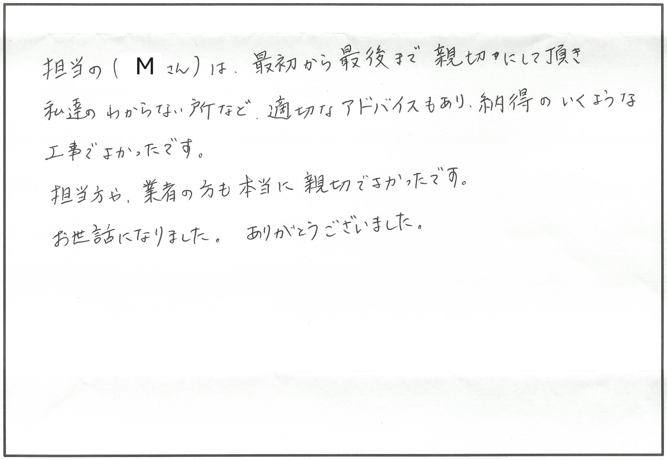 担当の(Mさん)は、最初から最後まで親切にして頂き
私達のわからない所など、適切なアドバイスもあり、納得のいくような
工事でよかったです。
担当方や、業者の方も本当に親切でよかったです。
お世話になりました。 ありがとうございました。